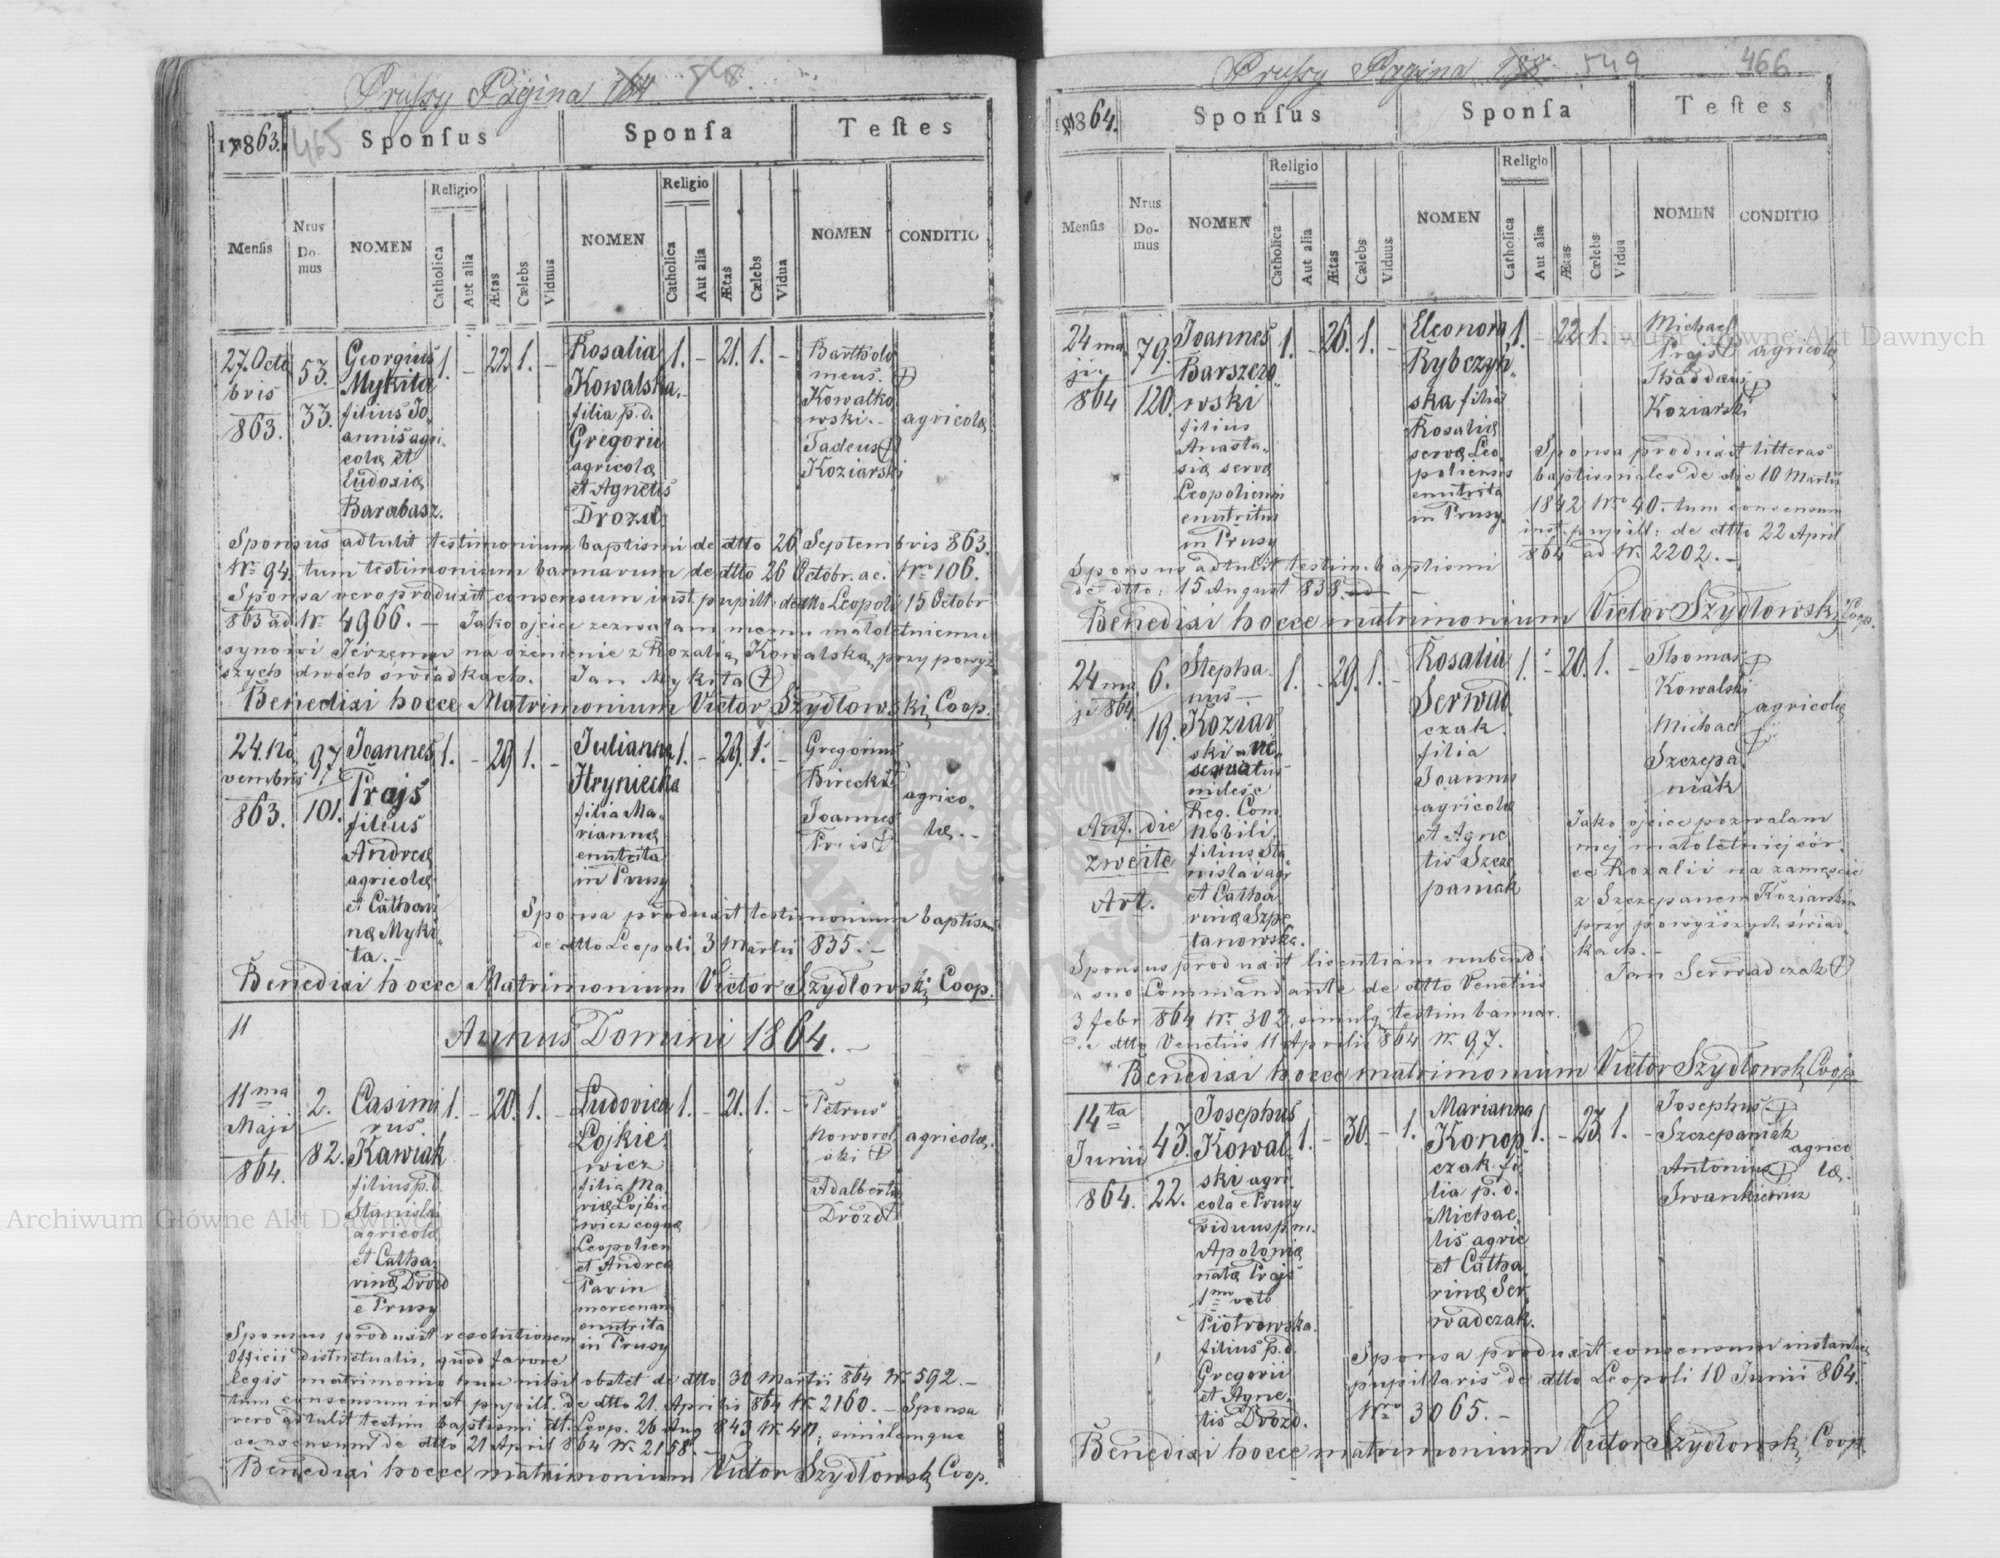 Prussy Pagina
1863. 465 Sponsus Sponsa Testes
Mensis Nrus Domus NOMEN Religio Catholica Aut alia Ætas Cælebs Viduus NOMEN Religio Catholica Aut alia Ætas Cælebs Vidua NOMEN CONDITIO
27. Octo
bris
863.
53.
33.
Georgius
Mykita
filius Jo
annis agri
colæ et
Eudoxiæ
Barabasz.
1. - 22 1. -
Rosalia
Kowalska
filia p. d.
Gregorii
agricolæ
et Agnetis
Drozd.
1. - 21. 1. -
Bartholo
meus
Kowalko
wski
Tadeus
Koziarski
agricolæ
Sponsus adtulit testimonium baptismi de dtto 26 Septembris 863.
Nr. 94. tum testimonium bannorum de dtto 26 Octobr. a c. Nro 106.
Sponsa vero produxit consensum inst. pupill: de dtto Leopoli 15 Octobr
863 ad Nr. 4966. — Jako ojciec zezwalam memu małoletniemu
synowi Jerzemu na ożenienie z Rozalią Kowalską, przy powyż
szych dwóch świadkach. Jan Mykita
Benedixi hocce Matrimonium Victor Szydłowski, Coop.
24. No
vembris
863.
97.
101.
Joannes
Prajs
filius
Andreæ
agricolæ
et Cathari
næ Myki
ta. -
1. - 29 1. -
Julianna
Hryniecka
filia Ma
riannæ
enutrita
in Prusy
1. - 29. 1. -
Gregorius
Birecki
Joannes
agrico
læ. -
Sponsa produxit testimonium baptism
de dtto Leopoli 3 Martii 835. -
Benedixi hocce Matrimonium Victor Szydłowski Coop.
11
Annus Domini 1864. -
11ma
Maji
864.
2.
82.
Casimi
rus
Kawiak
filius p. d.
Stanislai
agricolæ
et Catha
rinæ Drozd
e Prusy
1. - 20. 1. -
Ludovica
Łojkie
wicz
filia Ma
riæ Łojkie
wicz coquæ
Leopolien
et Andreæ
Pavin
mercenarii
enutrita
in Prusy
1. - 21. 1. -
Petrus
Noworol
ski
Adalbertus
Drozd
agricolæ.
Sponsus produxit resolutionem
Officii districtualis, quod favore
legis matrimonio huic nihil obstet de dtto 30 Martii 864 Nr 592. -
tum consensum inst. pupill. de dtto 21. Aprilis 864 Nr 2160. - Sponsa
vero adtulit testim. baptismi dt. Leop. 26 Aug 843 Nr. 40; similemque
consensum de dtto 21 April 864 Nr. 2158. -
Benedixi hocce matrimonium Victor Szydłowski Coop.
Prussy Pagina 549 466
1864. Sponsus Sponsa Testes
Mensis Nrus Domus NOMEN Religio Catholica Aut alia Ætas Cælebs Viduus NOMEN Religio Catholica Aut alia Ætas Cælebs Vidua NOMEN CONDITIO
24 ma
ji
864
79.
120.
Joannes
Barszczo
wski
filius
Anasta
siæ servæ
Leopoliensis
enutritus
in Prusy
1. - 26. 1. -
Eleonora
Rybczyń
ska filia
Rosaliæ
servæ Leo
poliensis
enutrita
in Prusy.
1. - 22 1. -
Michael
Prajs
Thaddæus
Koziarski
agricolæ
Sponsa produxit litteras
baptismales de die 10 Martii
1842 Nro 40. tum consensum
inst. pupill: de dtto 22 April
864 ad Nr. 2202. -
Sponsus adtulit testim. baptismi
de dtto: 15 August 838.
Benedixi hocce matrimonium Victor Szydłowski, Coop.
24 ma
ji 864.
6.
19.
Stepha
nus
Koziar
ski
miles e
Reg. Com
Nobili
filius Sta
nislai agr
et Catha
rinæ Szpe
tanowska.
Auf die
zweite
Art.
1. - 29. 1. -
Rosalia
Serwad
czak
filia
Joannis
agricolæ
et Agne
tis Szcze
paniak
1. - 20. 1. -
Thomas
Kowalski
Michael
Szczepa
niak
agricolæ
Jako ojciec pozwalam
mej małoletniej cór
ce Rozalii na zamęście
z Szczepanem Koziarskim
przy powyższych świad
kach. -
Jan Serwadczak
Sponsus produxit licentiam nubendi
a suo Commandante de dtto Venetiis
3 febr 864 Nr. 302, simulq testim bannor.
de dtto Venetiis 11 Aprilis 864 Nr 97.
Benedixi hocce matrimonium Victor Szydłowski Coop.
14ta
Junii
864.
43.
22.
Josephus
Kowal
ski agri
cola e Prusy
viduus p. m.
Apoloniæ
natæ Prajs
1mo voto
Piotrowska.
filius p. d.
Gregorii
et Agne
tis Drozd.
1. - 30. - 1.
Marianna
Konop
czak fi
lia p. d.
Michae
lis agric
et Catha
rinæ Ser
wadczak.
1. - 23. 1. -
Josephus
Szczepaniak
Antonius
Iwankiewicz
agrico
læ.
Sponsa produxit consensum instantiæ
pupillaris de dtto Leopoli 10 Junii 864.
Nro 3065. -
Benedixi hocce matrimonium Victor Szydłowski, Coop.
Archiwum Główne Akt Dawnych
Archiwum Główne Akt Dawnych